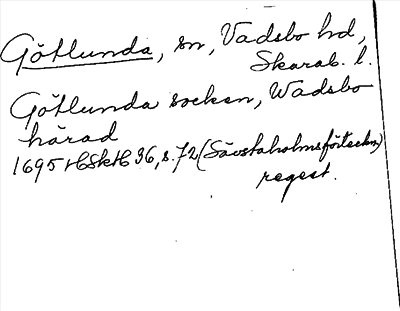 Götlunda, sn, Vadsbo hd,
Skarab. l.
Götlunda socken, Wadsbo
härad
1695 HSkH 36, s. 72 (Sävstaholmsförteckn)
regest.